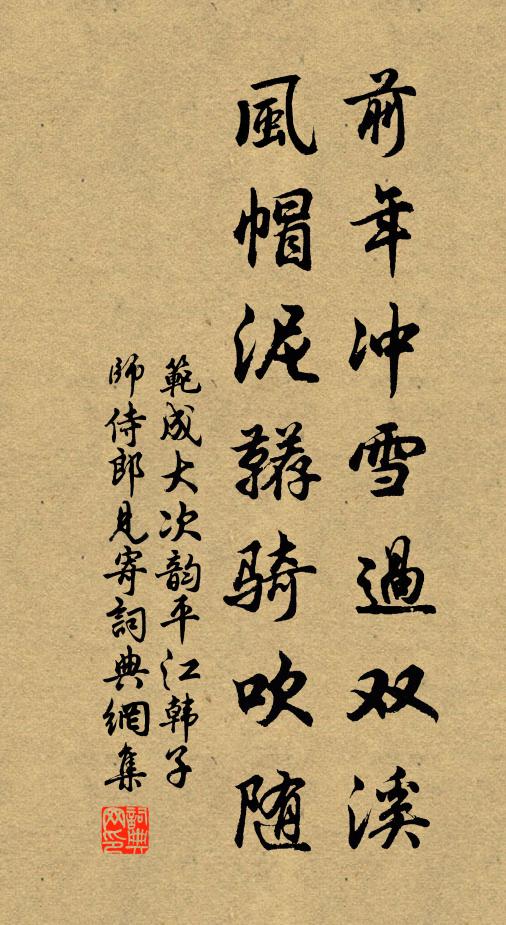 前年冲雪過双溪
風帽泥鞯骑吹随
範成大次韵平江韩子
師侍郎見寄詞典網集
詞典网印